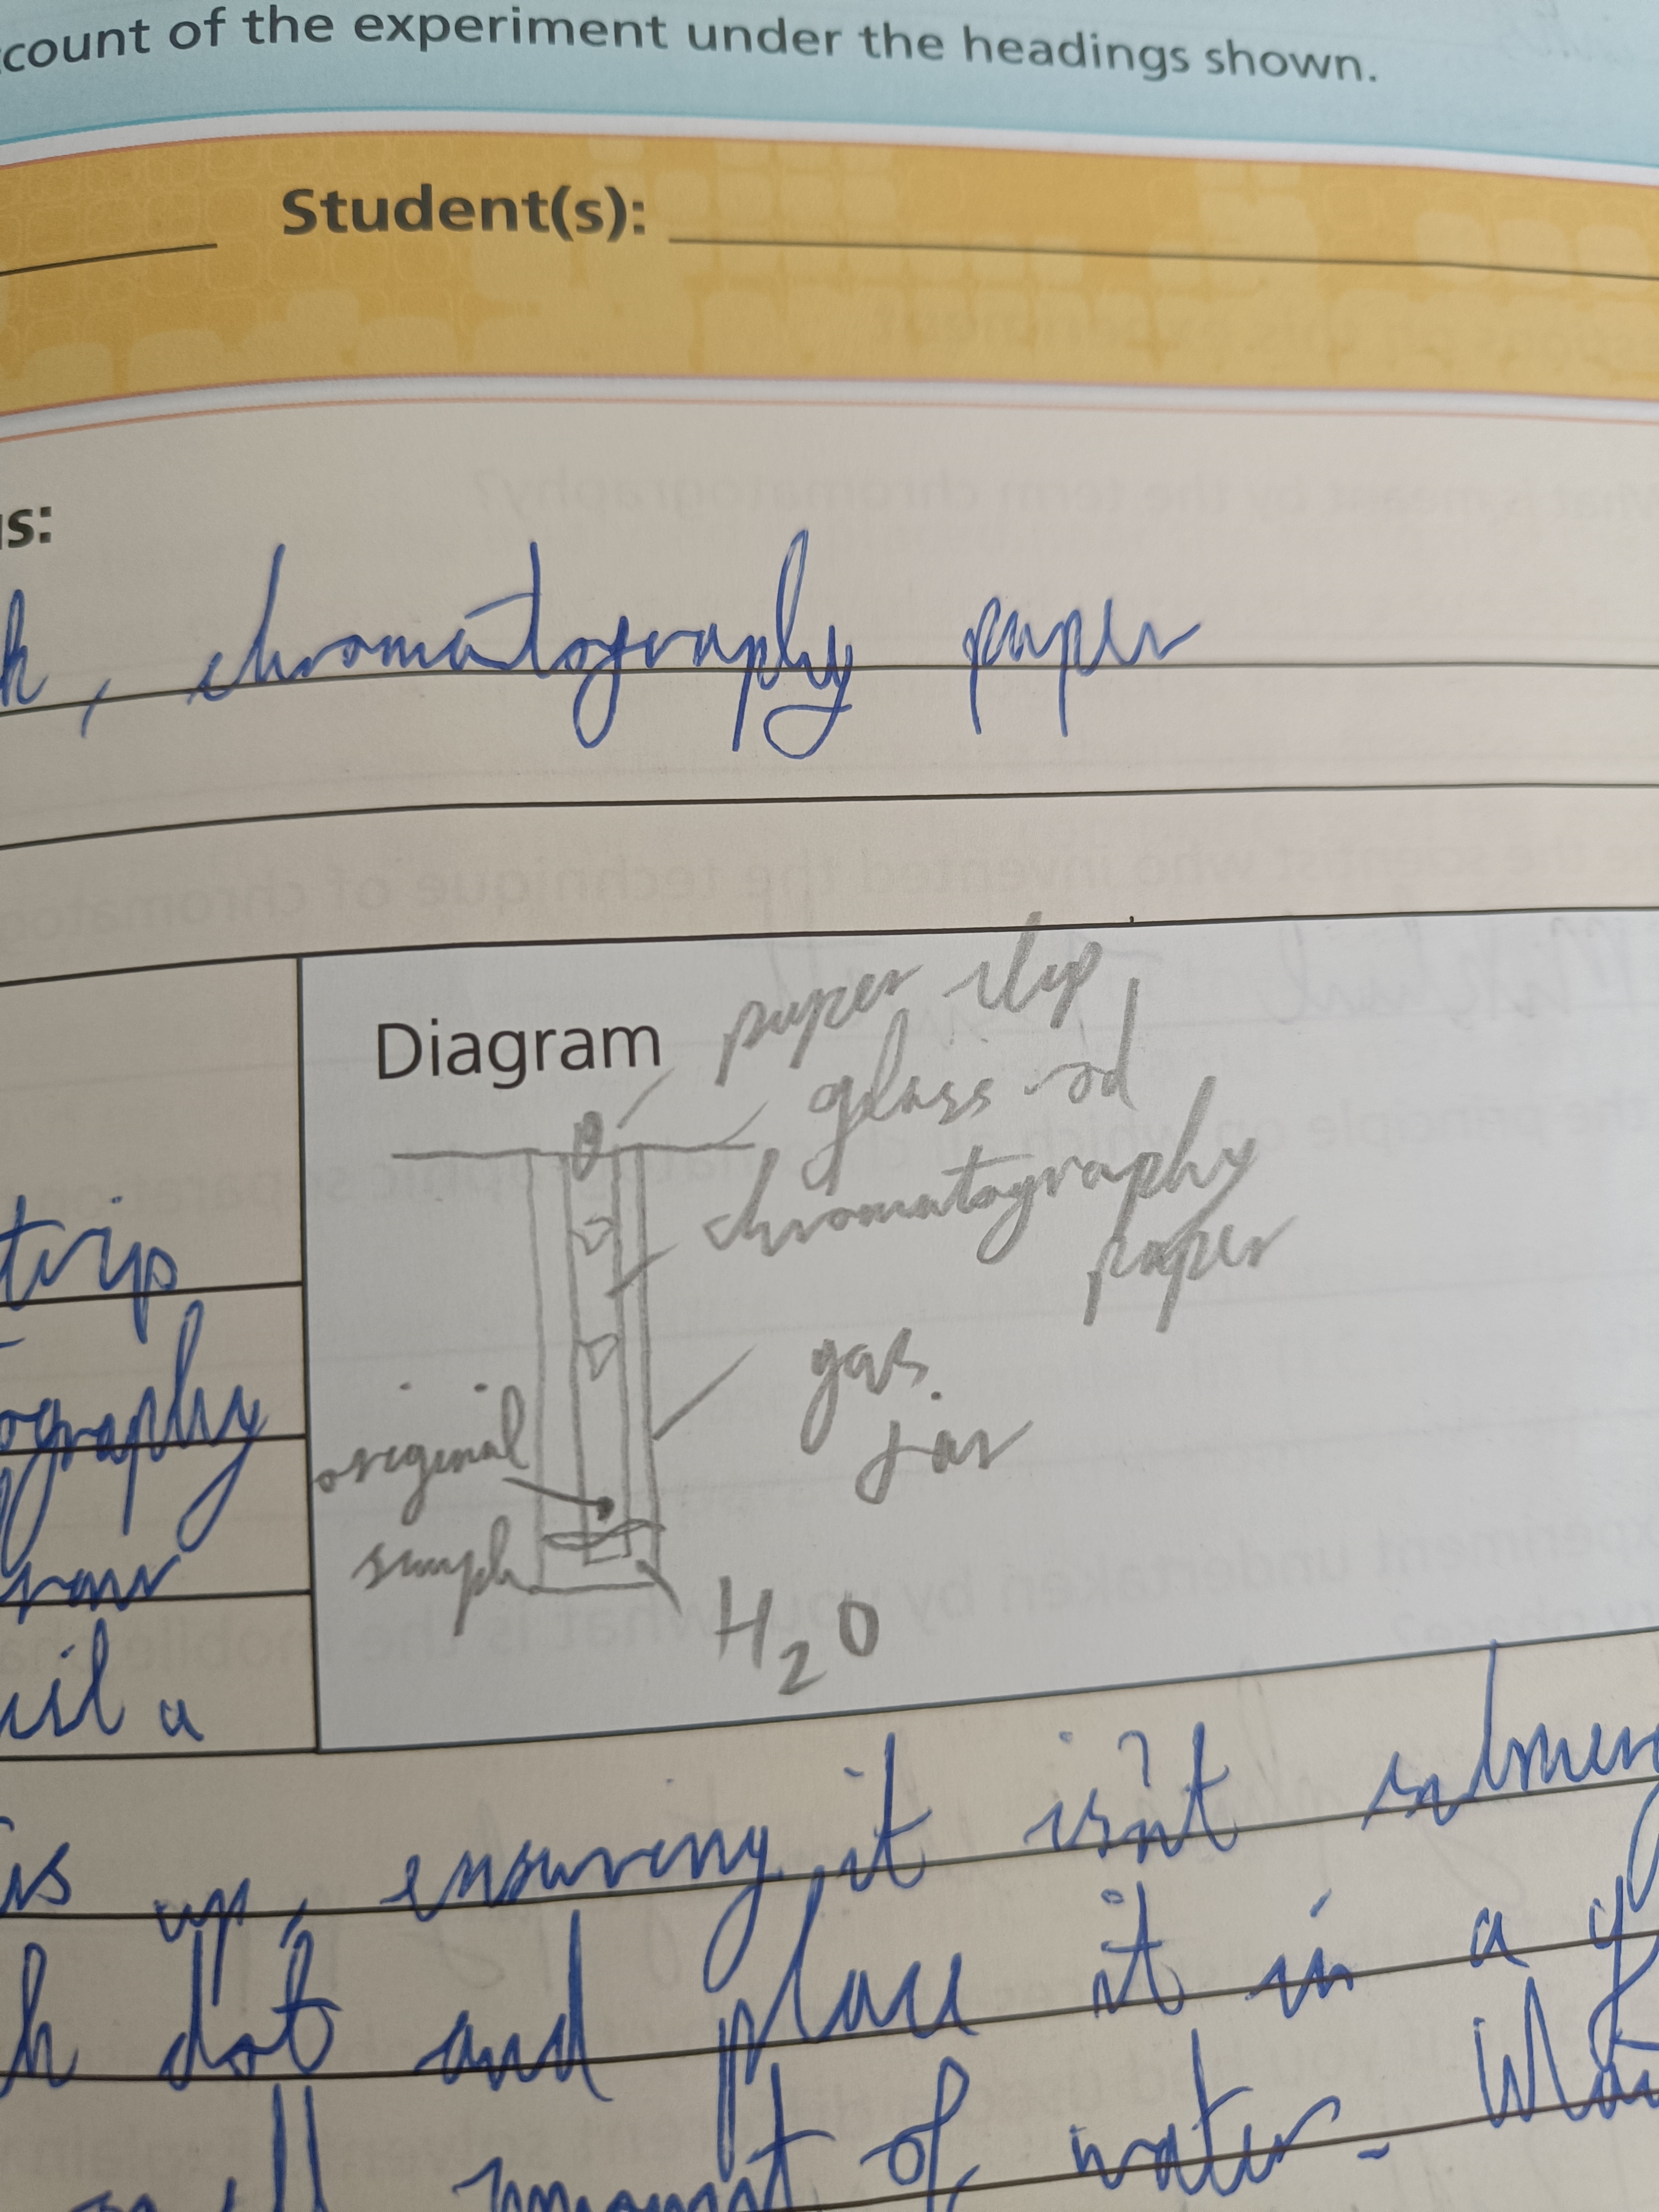 ccount of the experiment under the headings shown.
Student(s):
us:
h, chromatography paper
Diagram
paper clip
glass rod
chromatography
paper
gas
jar
original
sample
H₂O
trip
ography
raw
cil a
is up, ensuring it isn't submer
k dot and place it in a g
small amount of water. Wai